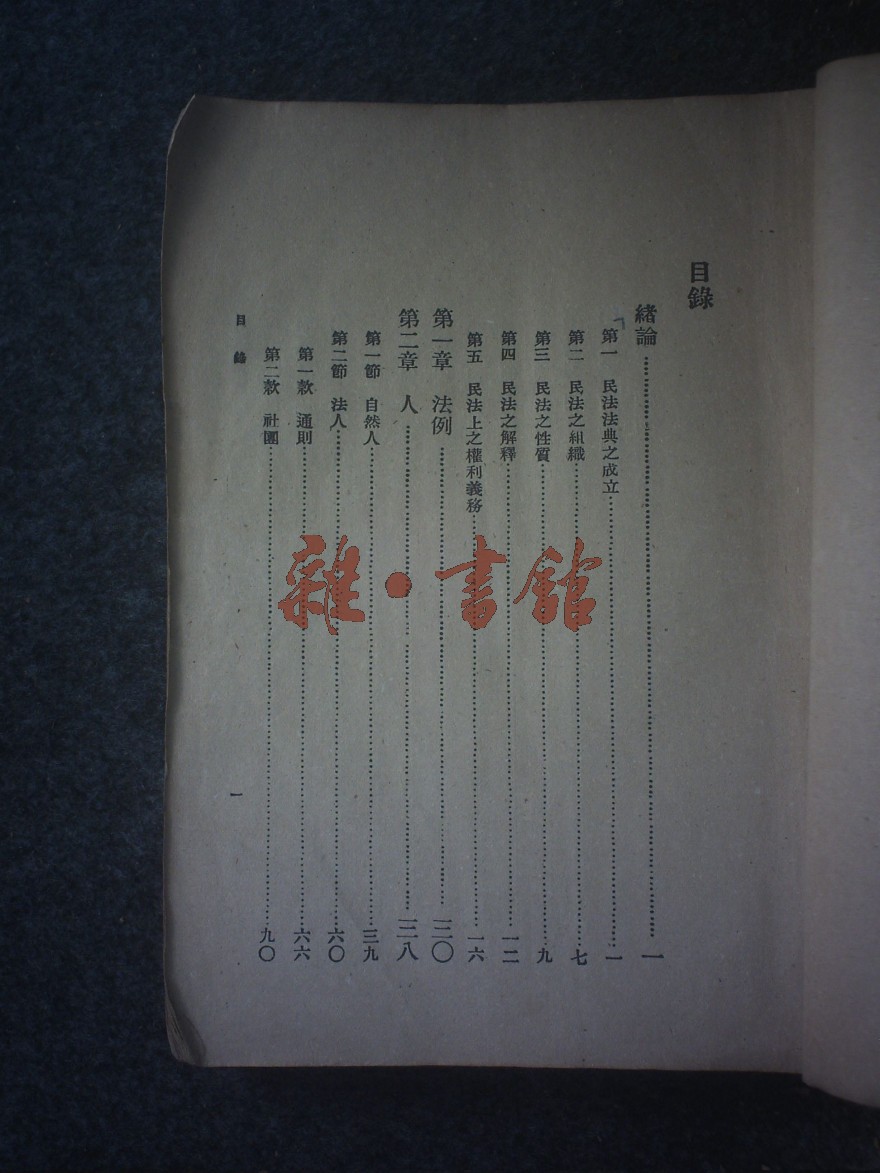 目錄
緒論……一
第一 民法法典之成立……一
第二 民法之組織……七
第三 民法之性質……九
第四 民法之解釋……一二
第五 民法上之權利義務……一六
第一章 法例……三〇
第二章 人……三八
第一節 自然人……三九
第二節 法人……六〇
第一款 通則……六六
第二款 社團……九〇
目錄
一
雜·書館